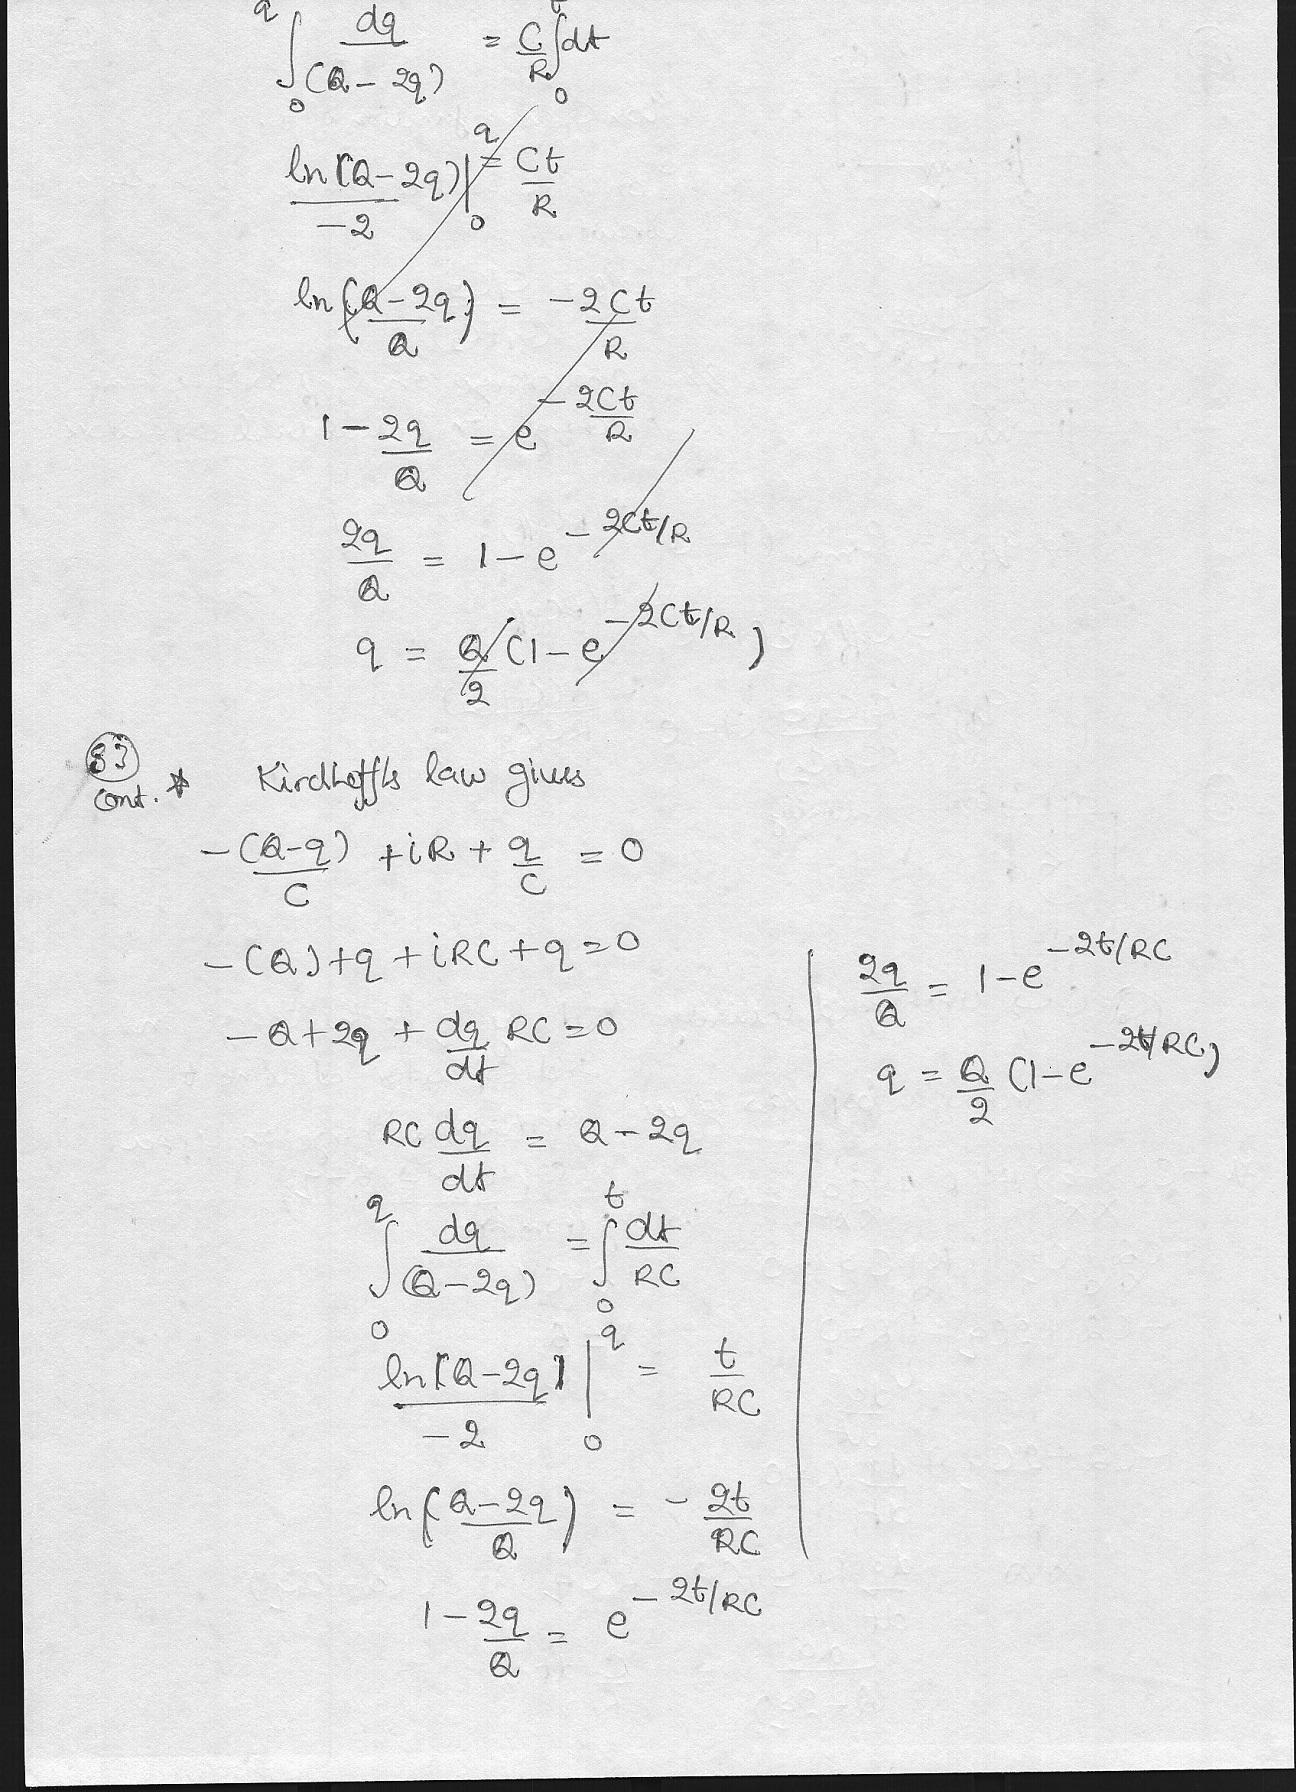 ∫₀^q dq/(Q-2q) = C/R ∫₀^t dt
ln(Q-2q)/-2 |₀^q = Ct/R
ln((Q-2q)/Q) = -2Ct/R
1 - 2q/Q = e^(-2Ct/R)
2q/Q = 1 - e^(-2Ct/R)
q = Q/2 (1 - e^(-2Ct/R))
83
cont. * Kirchhoff's law gives
-(Q-q)/C + iR + q/C = 0
-(Q) + q + iRC + q = 0
-Q + 2q + dq/dt RC = 0
RC dq/dt = Q - 2q
∫₀^q dq/(Q-2q) = ∫₀^t dt/RC
ln[Q-2q]/-2 |₀^q = t/RC
ln((Q-2q)/Q) = -2t/RC
1 - 2q/Q = e^(-2t/RC)
2q/Q = 1 - e^(-2t/RC)
q = Q/2 (1 - e^(-2t/RC))